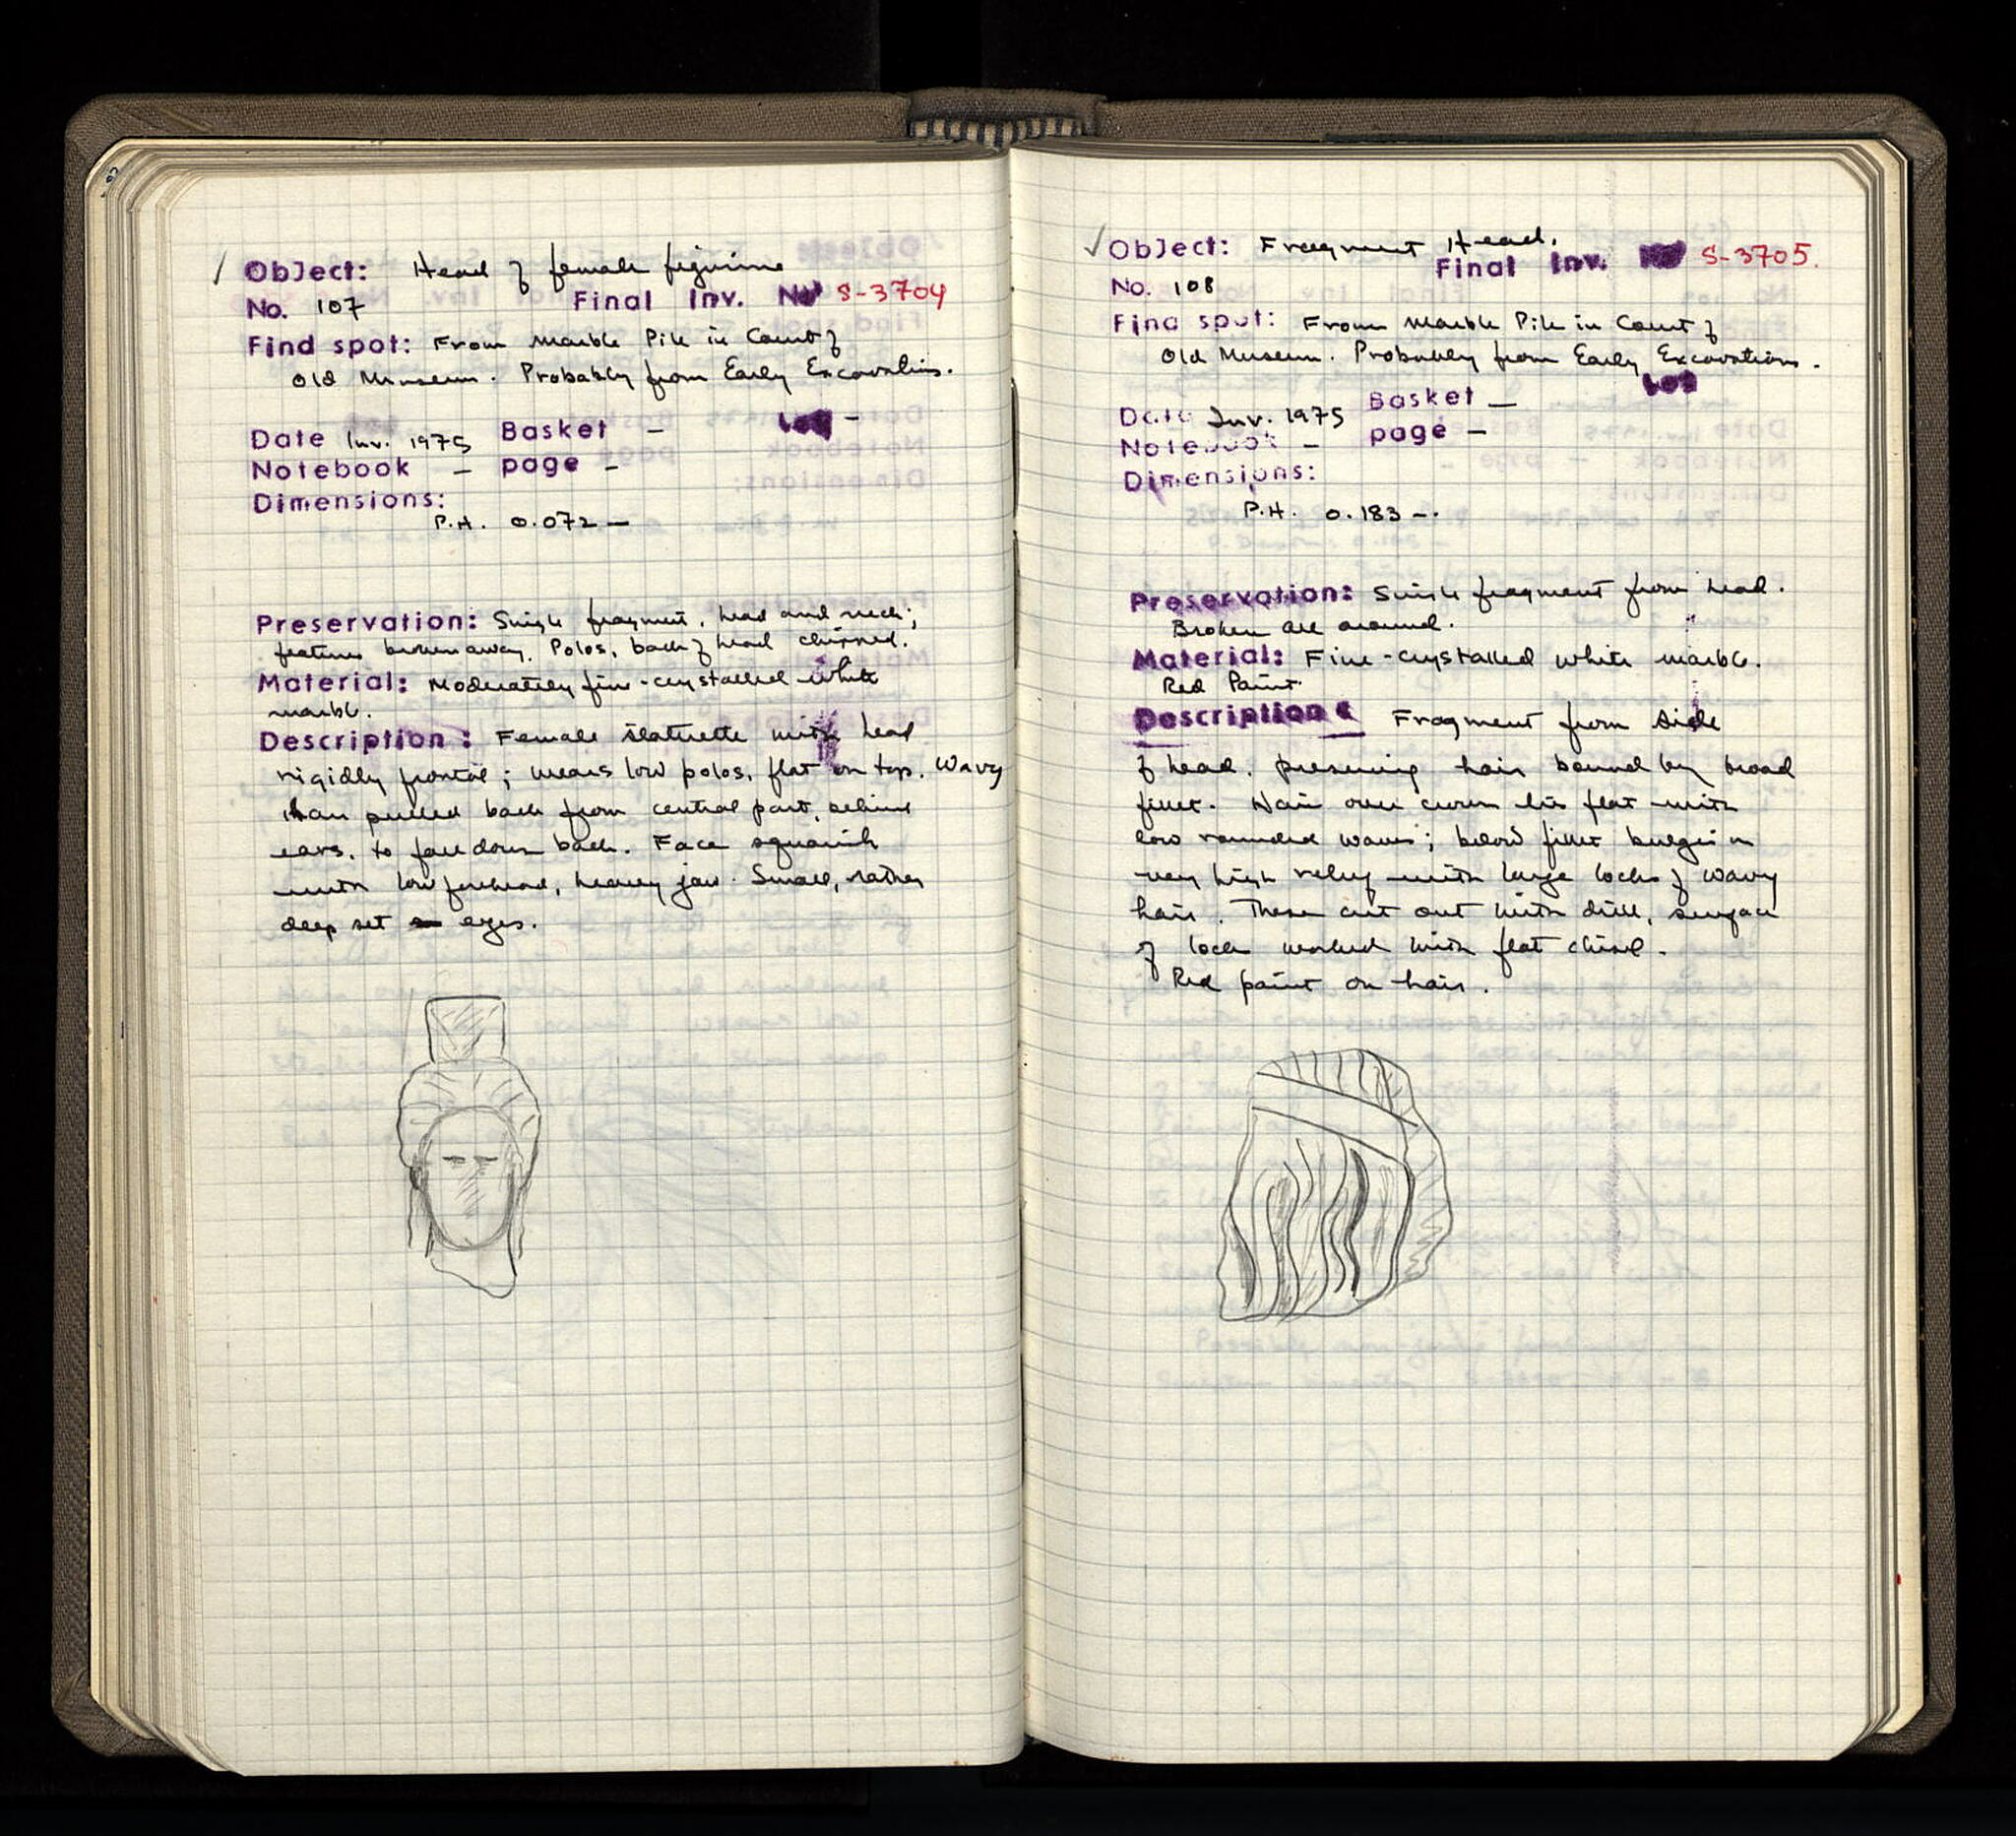 Object: Head of female figurine
No. 107 Final Inv. No S-3704
Find spot: From Marble Pile in Court of
Old Museum. Probably from Early Excavations.
Date Inv. 1975 Basket — Lot —
Notebook — page —
Dimensions:
P.H. 0.072 —
Preservation: Single fragment, head and neck;
features broken away. Polos, back of head chipped.
Material: Moderately fine-crystalled white
marble.
Description: Female statuette with head
rigidly frontal; wears low polos, flat on top. Wavy
hair pulled back from central part, behind
ears, to fall down back. Face squarish
with low forehead, heavy jaw. Small, rather
deep set eyes.
Object: Fragment Head.
Final Inv. No S-3705.
No. 108
Find spot: From Marble Pile in Court of
Old Museum. Probably from Early Excavations.
Lot
Date Inv. 1975 Basket —
Notebook — page —
Dimensions:
P.H. 0.183 —.
Preservation: Single fragment from head.
Broken all around.
Material: Fine-crystalled white marble.
Red Paint.
Description: Fragment from side
of head, preserving hair bound by broad
fillet. Hair over crown lies flat with
low rounded waves; below fillet bulges in
very high relief with large locks of wavy
hair. These cut out with drill, surface
of locks worked with flat chisel.
Red paint on hair.